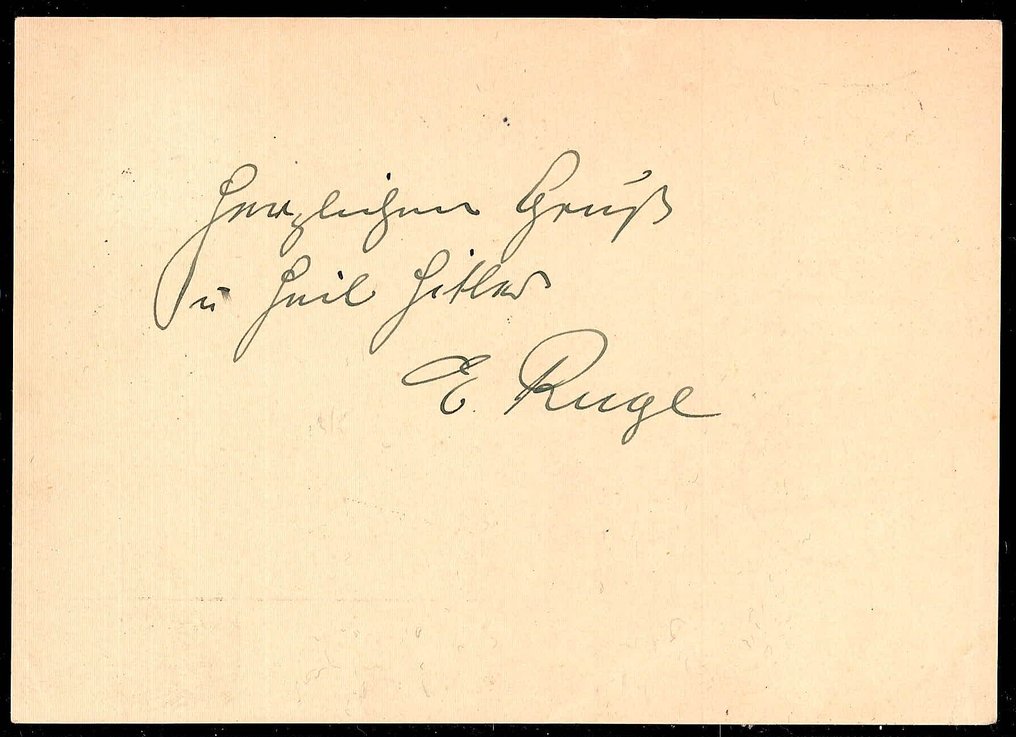 Herzlichen Gruß
u Heil Hitler
E. Ruge